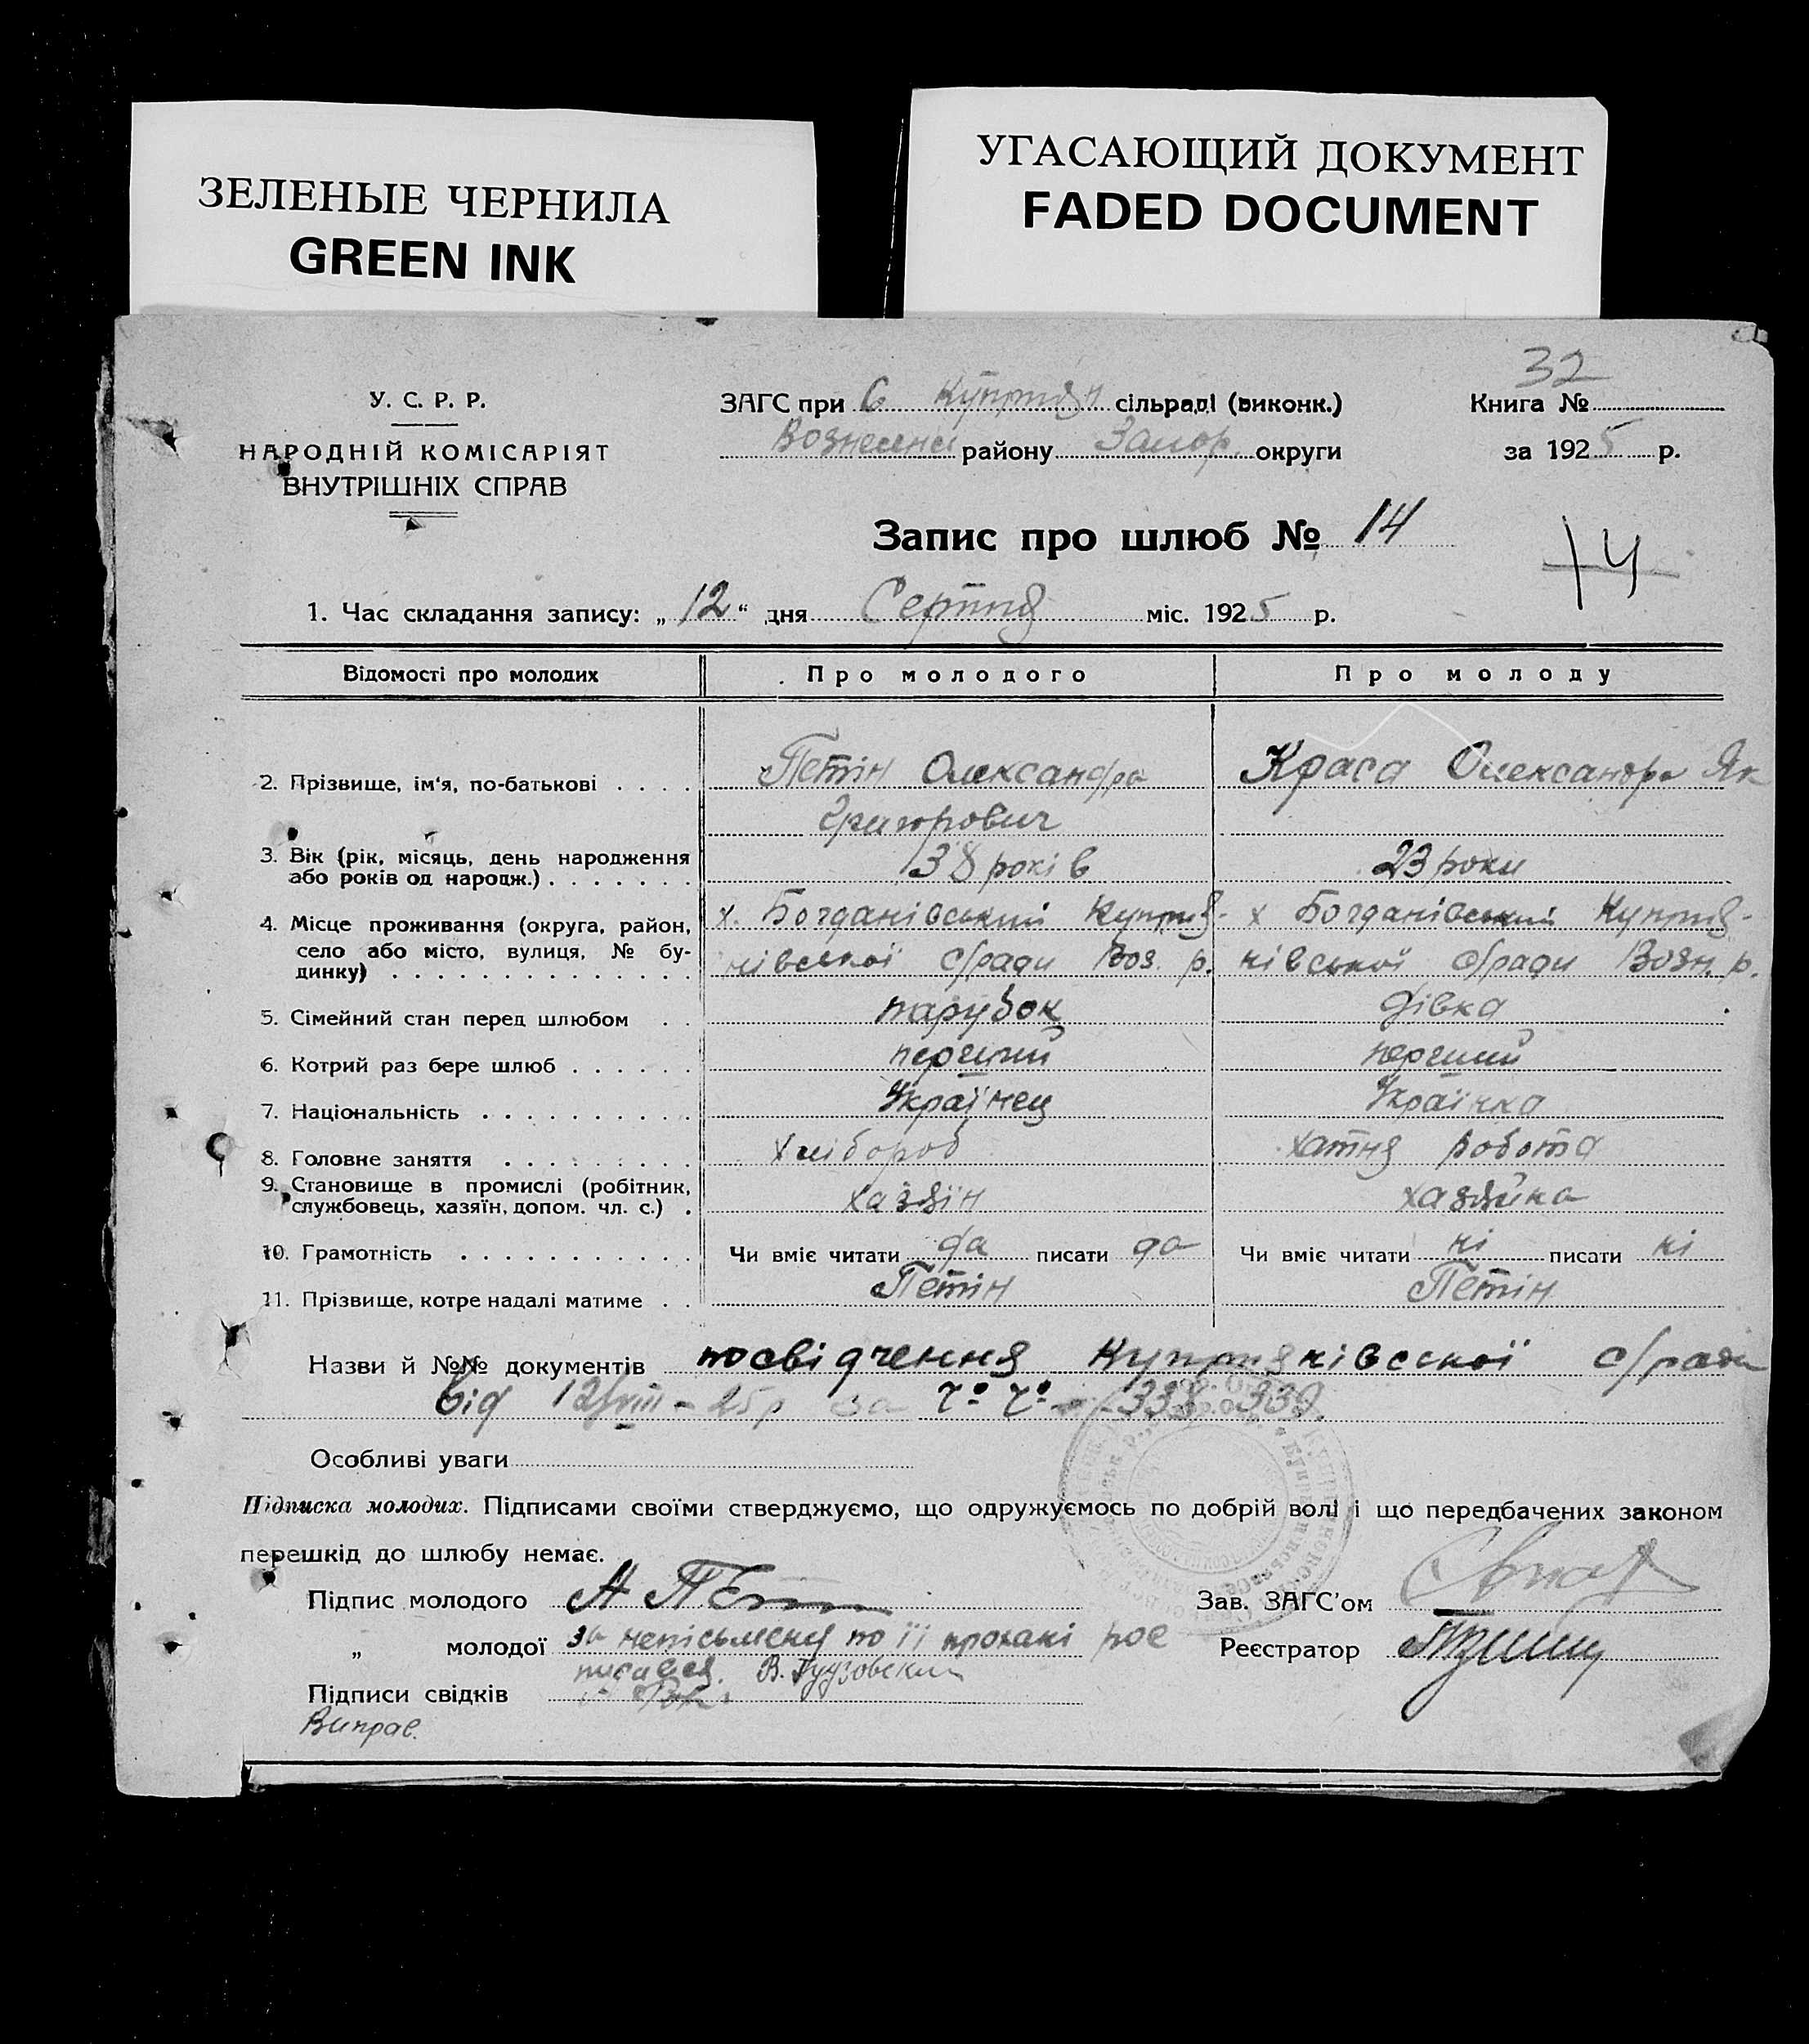 ЗЕЛЕНЫЕ ЧЕРНИЛА
GREEN INK
УГАСАЮЩИЙ ДОКУМЕНТ
FADED DOCUMENT
32
У. С. Р. Р.
НАРОДНІЙ КОМІСАРІЯТ
ВНУТРІШНІХ СПРАВ
ЗАГС при С Куприян сільраді (виконк.)
Вознесенс району Запор. округи
Книга №
за 1925 р.
Запис про шлюб № 14
14
1. Час складання запису: „12“ дня Серпня міс. 1925 р.
Відомості про молодих Про молодого Про молоду
2. Прізвище, ім'я, по-батькові . . . . Петін Олександра Краса Олександра Як
Григорович
3. Вік (рік, місяць, день народження
або років од народж.) . . . . . . . 38 років 23 роки
4. Місце проживання (округа, район, х. Богданівський Куприя- х Богданівський Куприя-
село або місто, вулиця, № бу-
динку) . . . . . . . . . . . . . . нівської с/ради Воз. р. нівської с/ради Возн. р.
5. Сімейний стан перед шлюбом . . парубок дівка
6. Котрий раз бере шлюб . . . . . . перший перший
7. Національність . . . . . . . . . . Українец Українка
8. Головне заняття . . . . . . . . . Хлібороб хатня робота
9. Становище в промислі (робітник,
службовець, хазяїн, допом. чл. с.) . хазяїн хазяйка
10. Грамотність . . . . . . . . . . . Чи вміє читати да писати да Чи вміє читати ні писати ні
11. Прізвище, котре надалі матиме . . Петін Петін
Назви й №№ документів посвідчення Куприянівської с/ради
від 12/VIII - 25 р за ч° ч° 338 339.
Особливі уваги
Підписка молодих. Підписами своїми стверджуємо, що одружуємось по добрій волі і що передбачених законом
перешкід до шлюбу немає.
Підпис молодого А Петін
Зав. ЗАГС'ом
„ молодої за неписьмену по її прохані рос
Реєстратор
писався. В. Гудзовский
Підписи свідків
Виправ.